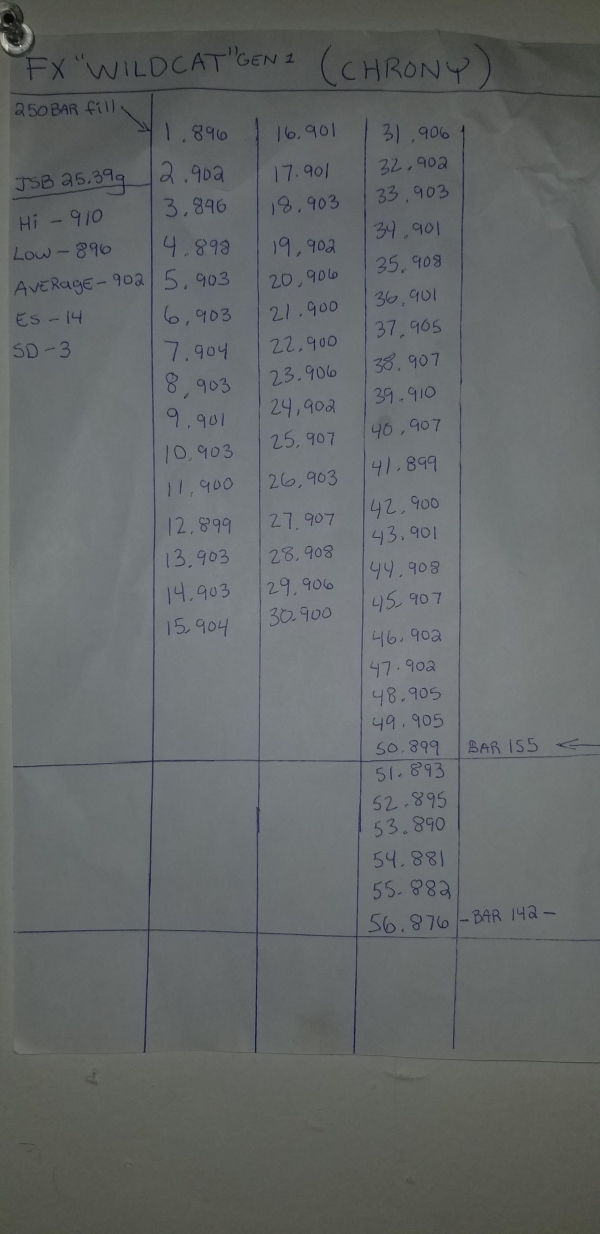 FX "WILDCAT" GEN 1 (CHRONY)
250 BAR fill
JSB 25.39g
Hi - 910
Low - 896
AVERAGE - 902
ES - 14
SD - 3
1. 896
2. 902
3. 896
4. 898
5. 903
6. 903
7. 904
8. 903
9. 901
10. 903
11. 900
12. 899
13. 903
14. 903
15. 904
16. 901
17. 901
18. 903
19. 902
20. 906
21. 900
22. 900
23. 906
24. 902
25. 907
26. 903
27. 907
28. 908
29. 906
30. 900
31. 906
32. 902
33. 903
34. 901
35. 908
36. 901
37. 905
38. 907
39. 910
40. 907
41. 899
42. 900
43. 901
44. 908
45. 907
46. 902
47. 902
48. 905
49. 905
50. 899 BAR 155
51. 893
52. 895
53. 890
54. 881
55. 882
56. 876 - BAR 142 -